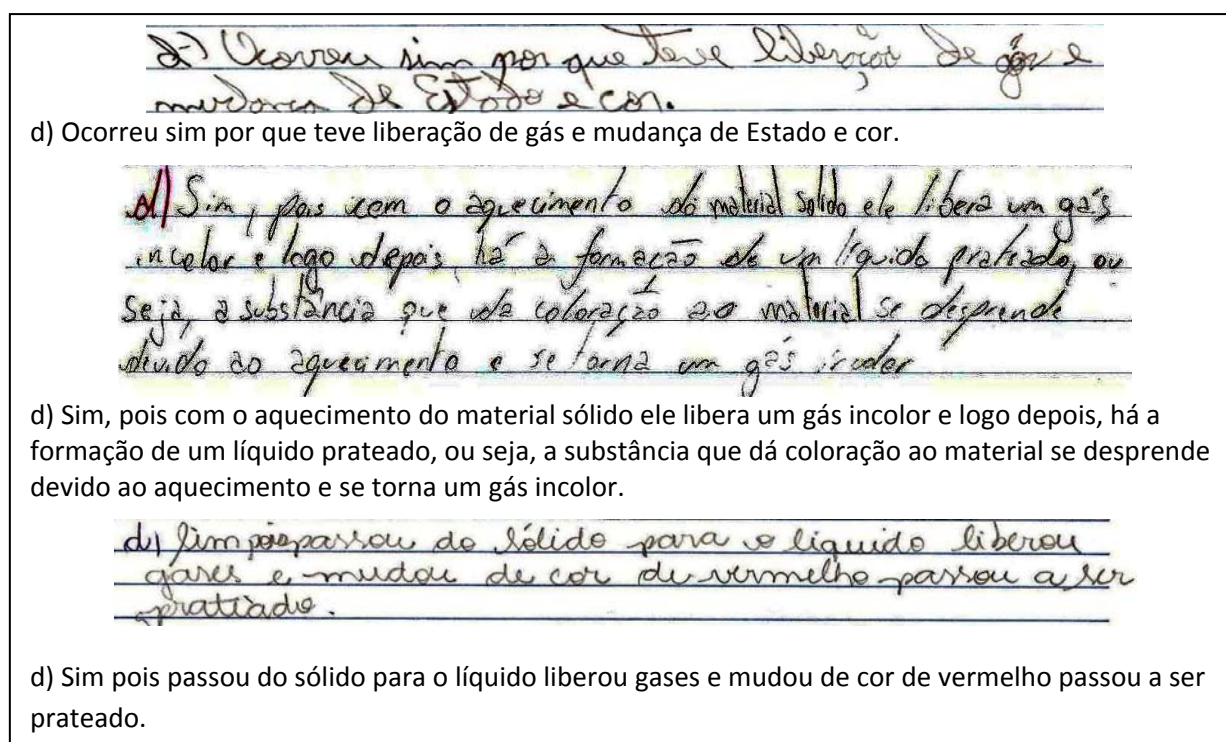 d) Ocorreu sim por que teve liberação de gás e
mudança de Estado e cor.
d) Ocorreu sim por que teve liberação de gás e mudança de Estado e cor.
d) Sim, pois com o aquecimento do material solido ele libera um gás
incolor e logo depois, há a formação de um líquido prateado, ou
seja, a substância que da coloração ao material se desprende
devido ao aquecimento e se torna um gás incolor
d) Sim, pois com o aquecimento do material sólido ele libera um gás incolor e logo depois, há a
formação de um líquido prateado, ou seja, a substância que dá coloração ao material se desprende
devido ao aquecimento e se torna um gás incolor.
d) Sim pois passou do sólido para o liquido liberou
gases e mudou de cor de vermelho passou a ser
prateado.
d) Sim pois passou do sólido para o líquido liberou gases e mudou de cor de vermelho passou a ser
prateado.